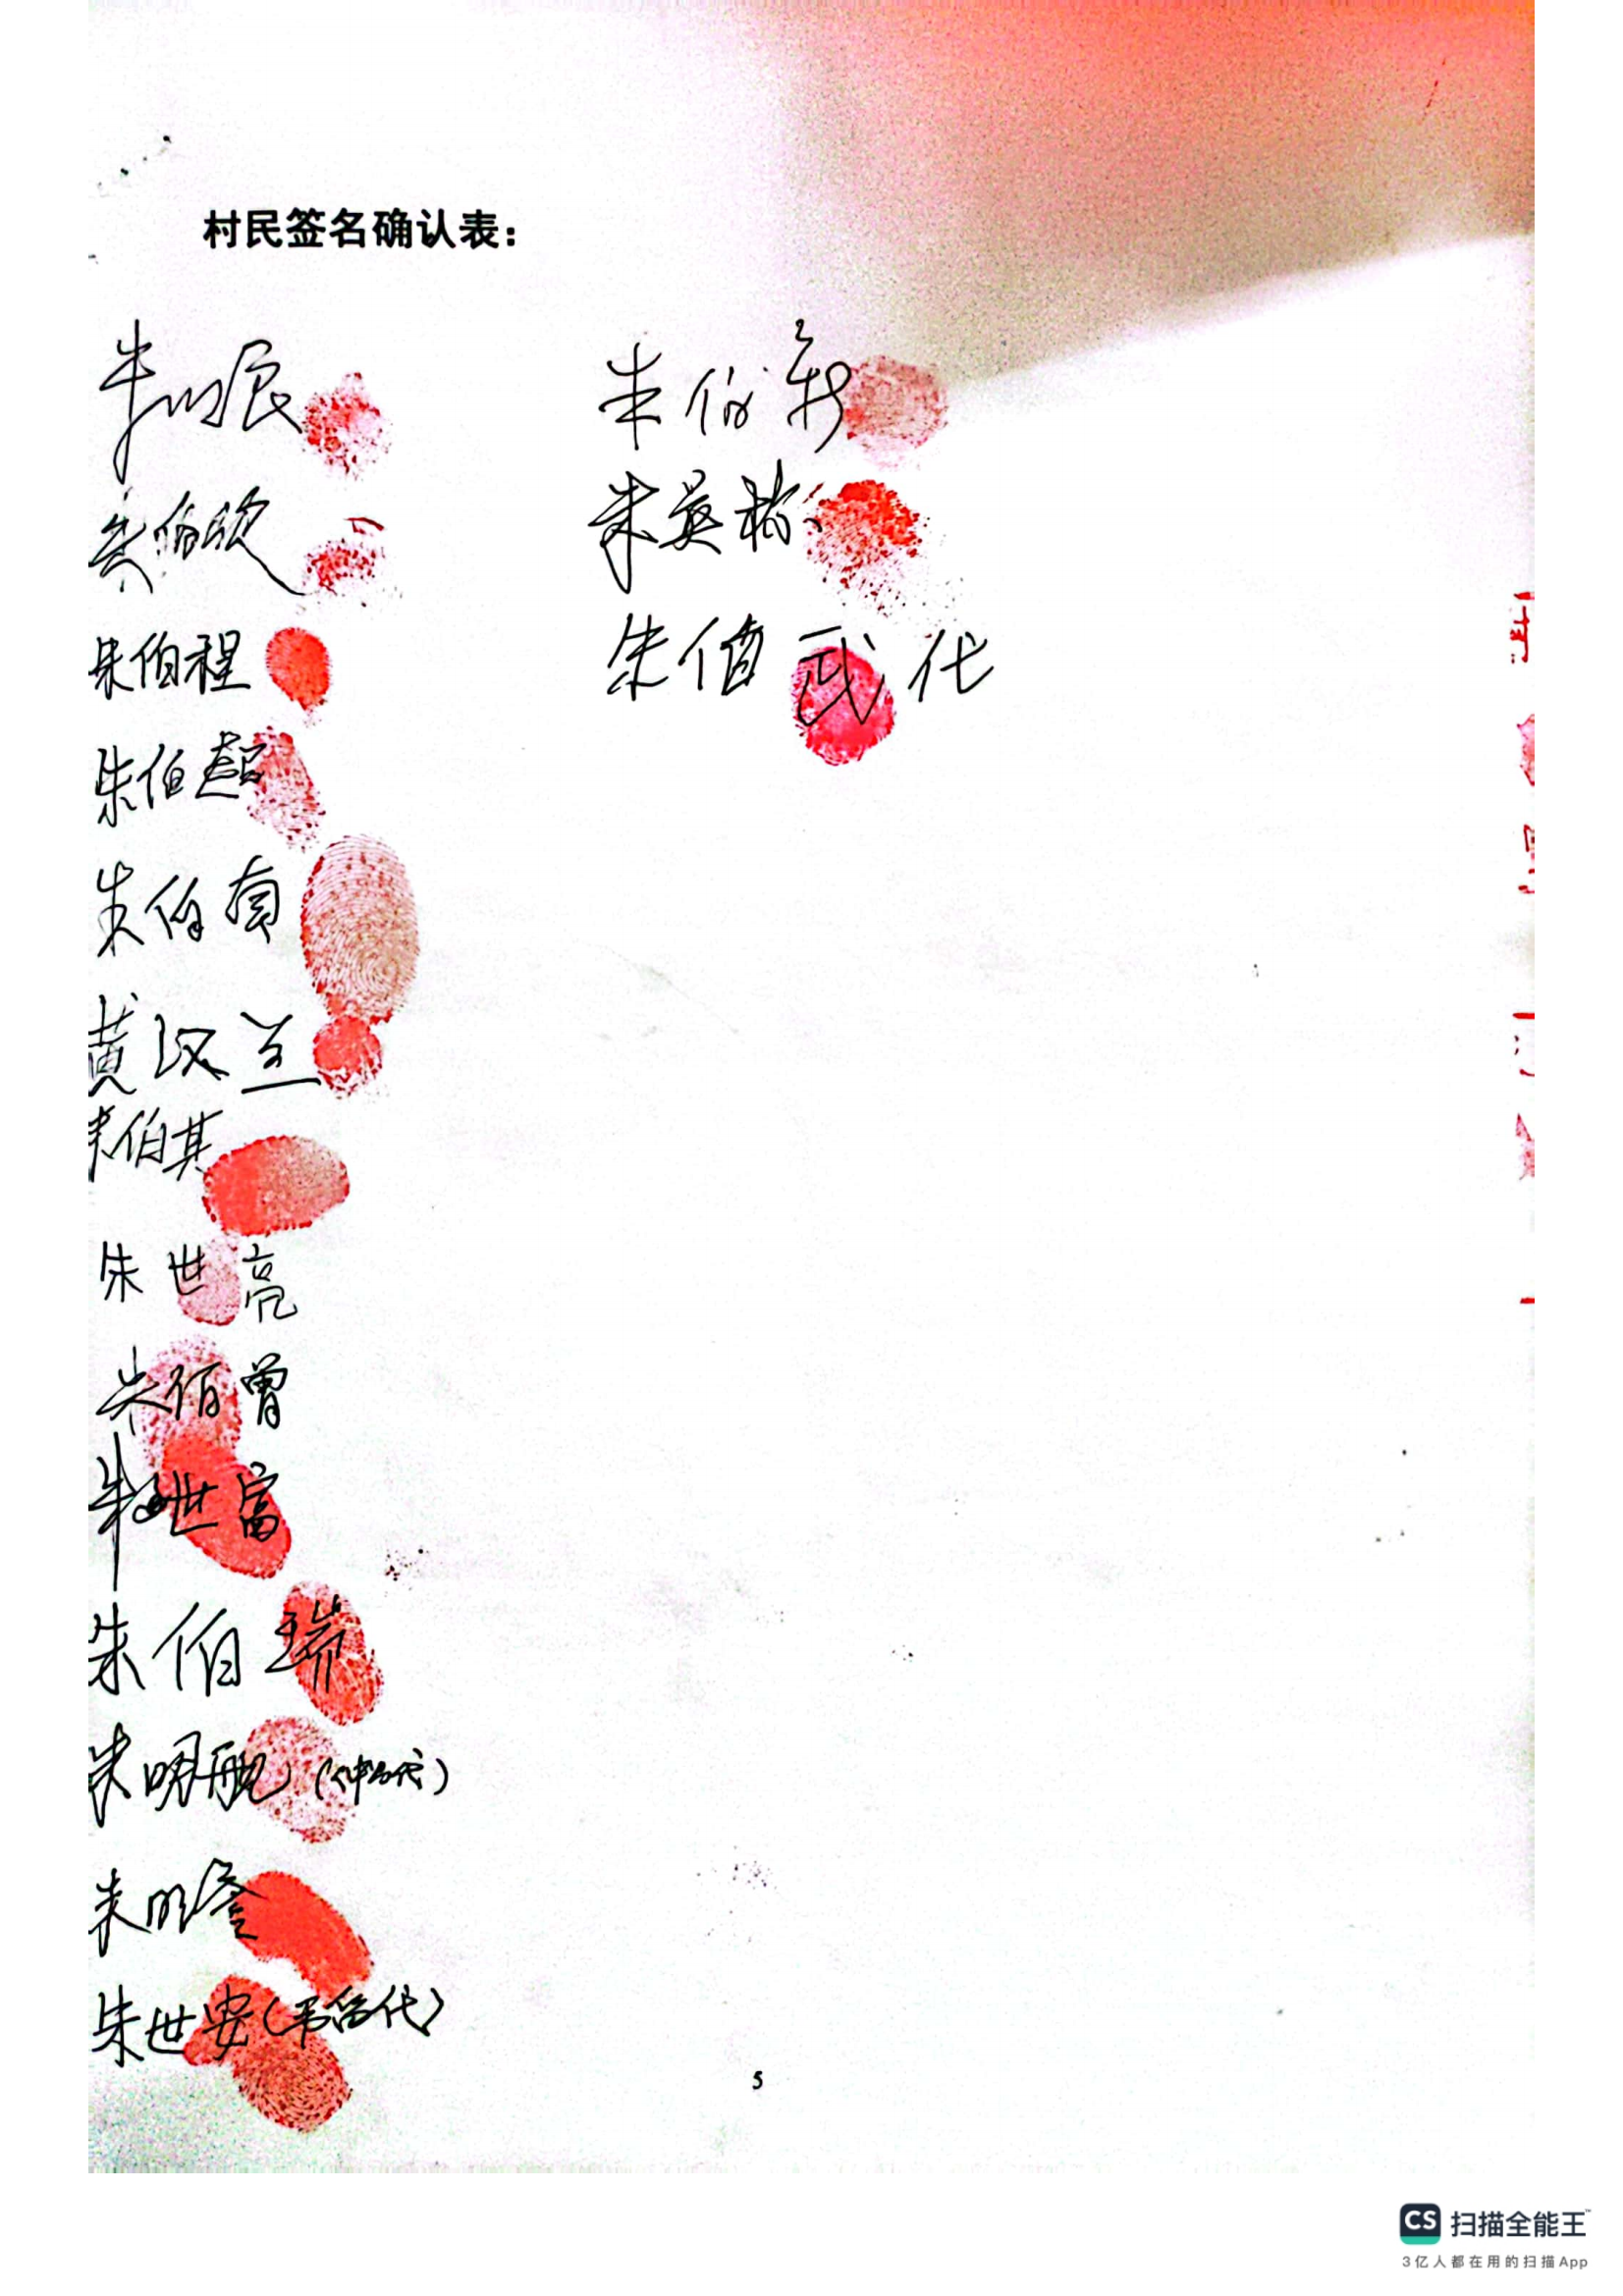 村民签名确认表：
朱明辰
朱伯欣
朱伯程
朱伯超
朱伯有
黄汉兰
朱伯其
朱世亮
朱伯曾
朱世富
朱伯瑞
朱明
朱明
朱世安（ 代）
朱伯新
朱英
朱伯武代
5
CS 扫描全能王
3亿人都在用的扫描App